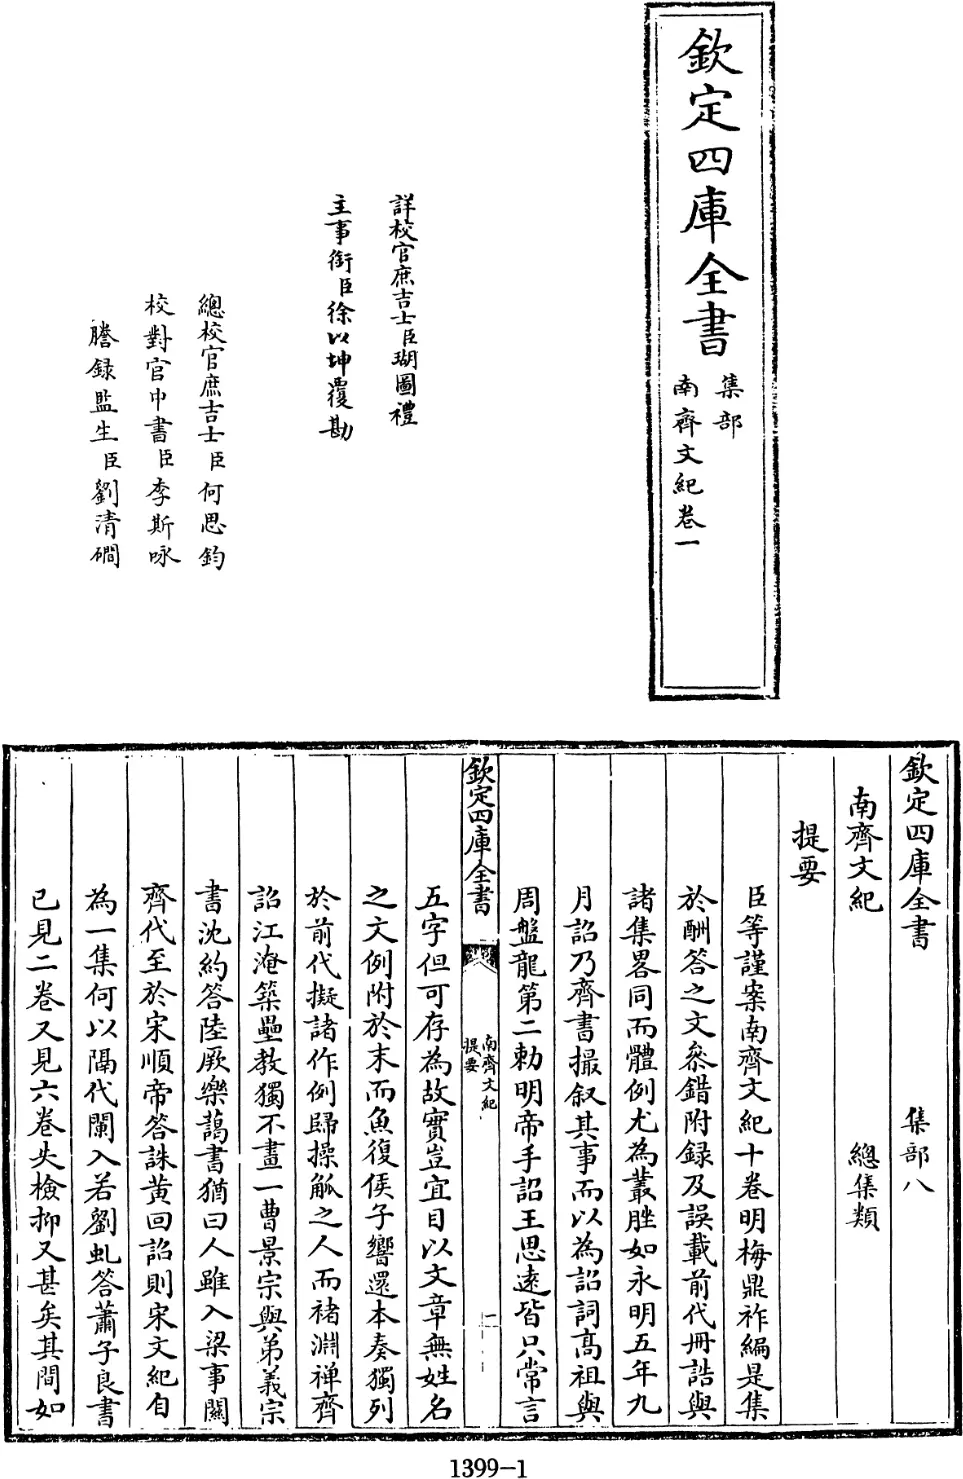 欽定四庫全書
集部
南齊文紀卷一
詳校官庶吉士臣瑚圖禮
主事銜臣徐以坤覆勘
總校官庶吉士臣何思鈞
校對官中書臣李斯咏
謄録監生臣劉清礀
欽定四庫全書 集部八
南齊文紀 總集類
提要
臣等謹案南齊文紀十卷明梅鼎祚編是集
於酬答之文叅錯附録及誤載前代冊誥與
諸集畧同而體例尤為叢脞如永明五年九
月詔乃齊書撮叙其事而以為詔詞高祖與
周盤龍第二勅明帝手詔王思逺皆只常言
欽定四庫全書
南齊文紀
提要
一
五字但可存為故實豈宜目以文章無姓名
之文例附於末而魚復侯子響還本奏獨列
於前代擬諸作例歸操觚之人而禇淵禪齊
詔江淹築壘教獨不畫一曹景宗與弟義宗
書沈約答陸厥樂藹書猶曰人雖入梁事闗
齊代至於宋順帝答誅黄回詔則宋文紀自
為一集何以隔代闌入若劉虬答蕭子良書
已見二卷又見六卷失檢抑又甚矣其間如
1399-1